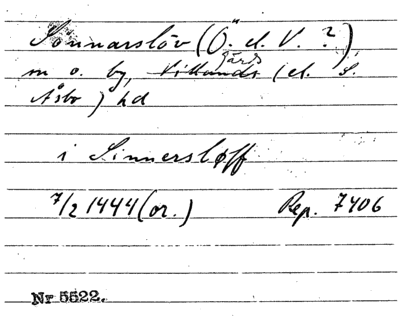 Sönnarslöv (Ö. el. V. ?),
m o. by, Villands (el. S.
gärds
Åsbo) hd
i Sinnersløff
7/2 1444 (or.) Rep. 7406
Nr 5522.